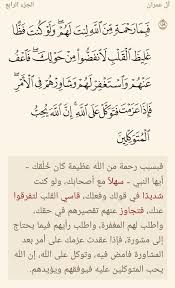 آل عمران الجزء الرابع
فَبِمَا رَحْمَةٍ مِّنَ ٱللَّهِ لِنتَ لَهُمْ ۖ وَلَوْ كُنتَ فَظًّا
غَلِيظَ ٱلْقَلْبِ لَٱنفَضُّوا۟ مِنْ حَوْلِكَ ۖ فَٱعْفُ
عَنْهُمْ وَٱسْتَغْفِرْ لَهُمْ وَشَاوِرْهُمْ فِى ٱلْأَمْرِ ۖ
فَإِذَا عَزَمْتَ فَتَوَكَّلْ عَلَى ٱللَّهِ ۚ إِنَّ ٱللَّهَ يُحِبُّ
ٱلْمُتَوَكِّلِينَ
فبسبب رحمة من الله عظيمة كان خُلقك -
أيها النبي - سهلًا مع أصحابك، ولو كنت
شديدًا في قولك وفعلك، قاسي القلب لتفرقوا
عنك، فتجاوز عنهم تقصيرهم في حقك،
واطلب لهم المغفرة، واطلب رأيهم فيما يحتاج
إلى مشورة، فإذا عقدت عزمك على أمر بعد
المشاورة فامض فيه، وتوكل على الله، إن الله
يحب المتوكلين عليه فيوفقهم ويؤيدهم.